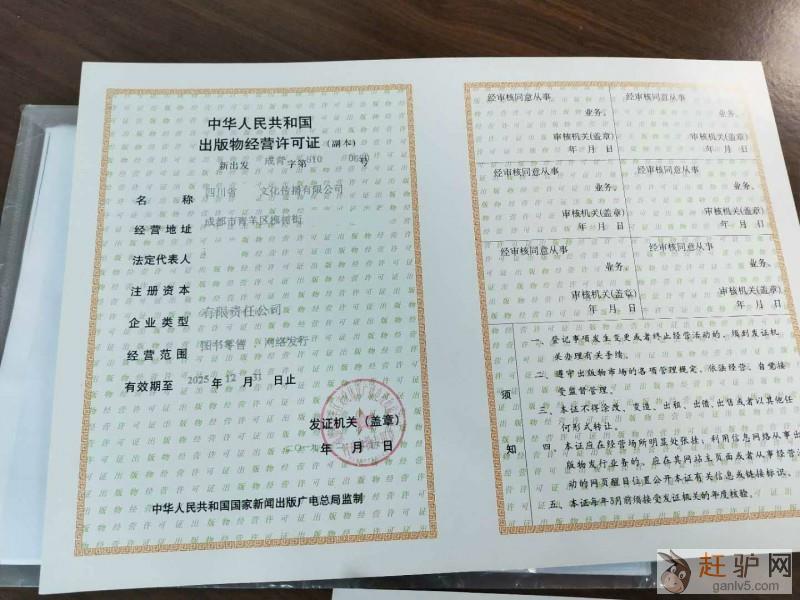 中华人民共和国
出版物经营许可证(副本)
新出发 成青 字第 510 号
名称 四川省 文化传播有限公司
经营地址 成都市青羊区
法定代表人
注册资本
企业类型 有限责任公司
经营范围 图书零售 网络发行
有效期至 2025年12月31日止
发证机关(盖章)
年 月 日
中华人民共和国国家新闻出版广电总局监制
经审核同意从事
业务。
审核机关(盖章)
年 月 日
经审核同意从事
业务。
审核机关(盖章)
年 月 日
经审核同意从事
业务。
审核机关(盖章)
年 月 日
经审核同意从事
业务。
审核机关(盖章)
年 月 日
经审核同意从事
业务。
审核机关(盖章)
年 月 日
经审核同意从事
业务。
审核机关(盖章)
年 月 日
须知
一、登记事项发生变更或者终止经营活动的，须到发证机
关办理有关手续。
二、遵守出版物市场的各项管理规定，依法经营，自觉接
受监督管理。
三、本证不得涂改、变造、出租、出借、出售或者以其他任
何形式转让。
四、本证应在经营场所明显处张挂，利用信息网络从事出
版物发行业务的，应在其网站主页面或者从事经营活
动的网页醒目位置公开本证有关信息或链接标识。
五、本证每年3月前须接受发证机关的年度核验。
赶驴网
ganlv5.com